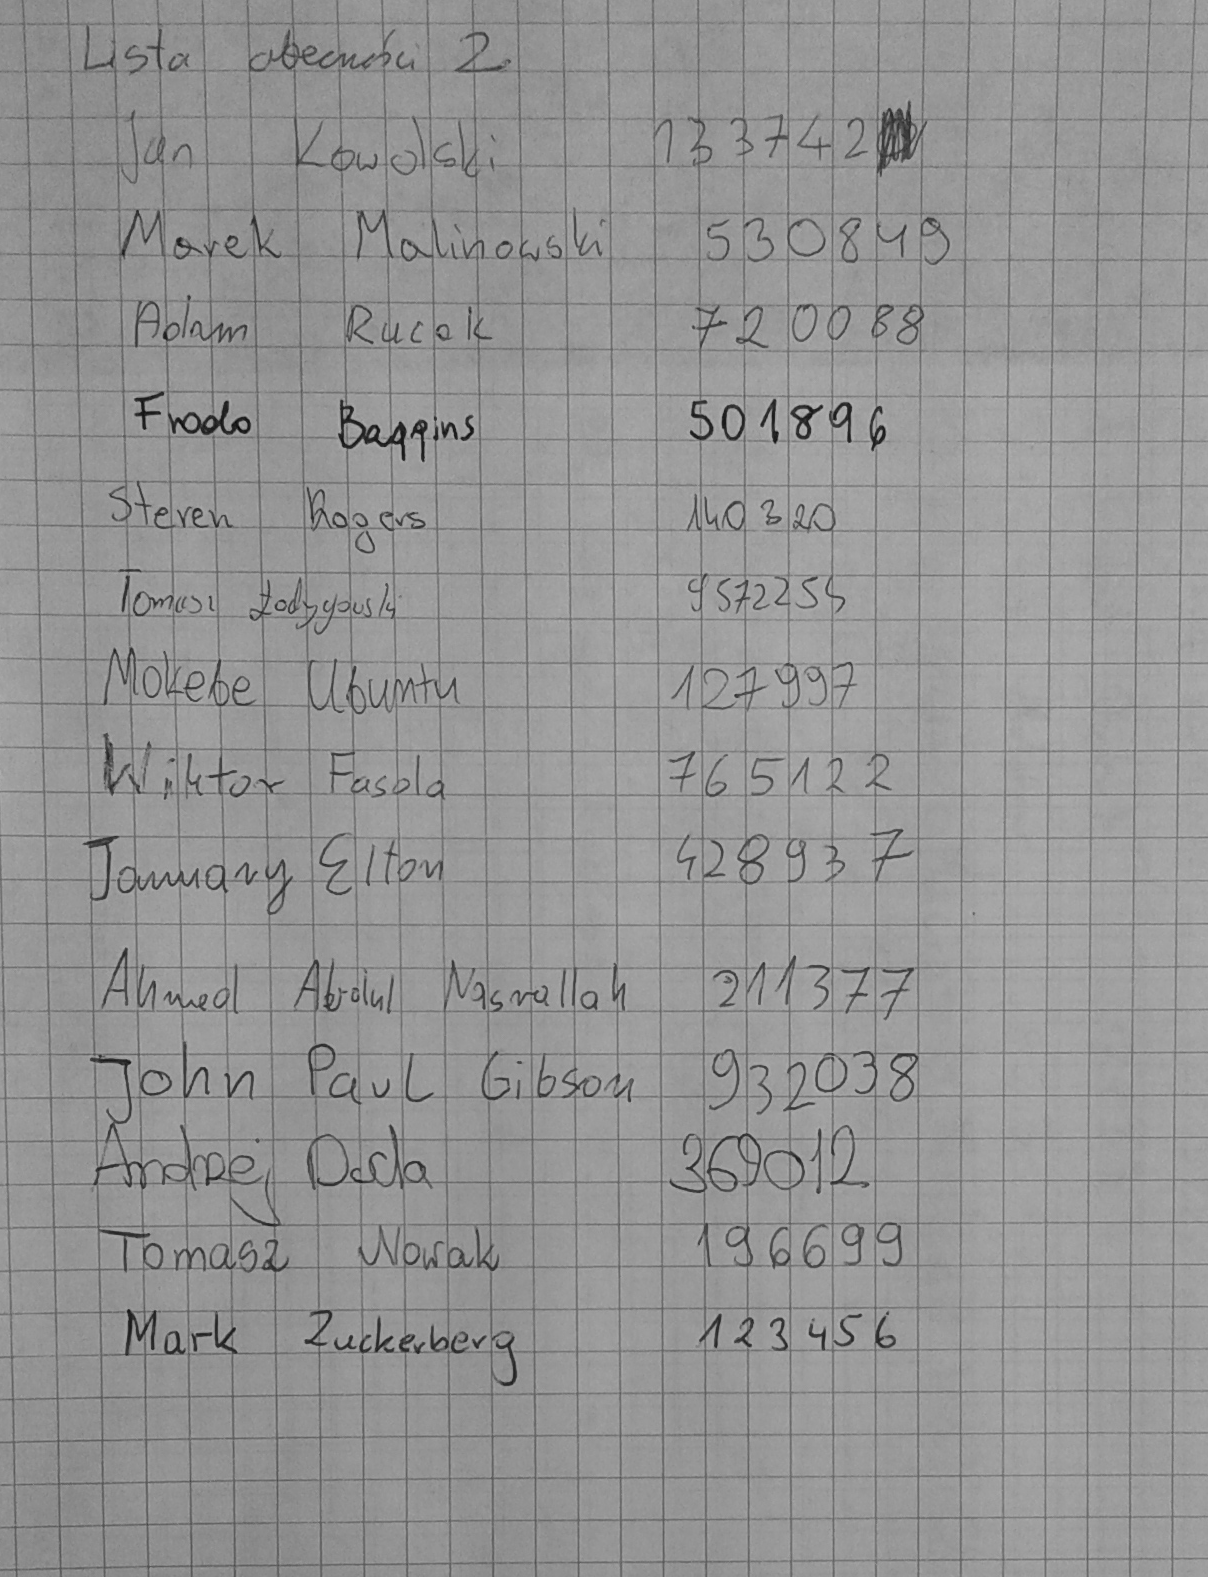 Lista obecności 2.
Jan Kowalski 133742
Marek Malinowski 530849
Adam Rucak 720088
Frodo Baggins 501896
Steven Rogers 140320
Tomasz 9572255
Mokebe Ubuntu 127997
Wiktor Fasola 765122
January Elton 428937
Ahmed Abdul Nasrallah 211377
John Paul Gibson 932038
Andrzej Duda 369012
Tomasz Nowak 196699
Mark Zuckerberg 123456